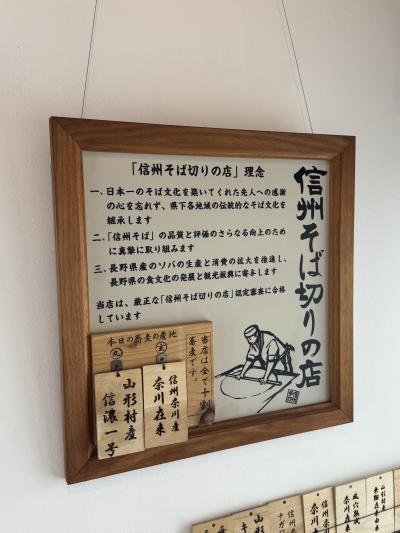 「信州そば切りの店」理念
一、日本一のそば文化を築いてくれた先人への感謝
の心を忘れず、県下各地域の伝統的なそば文化を
継承します
二、「信州そば」の品質と評価のさらなる向上のため
に真摯に取り組みます
三、長野県産のソバの生産と消費の拡大を推進し、
長野県の食文化の発展と観光振興に寄与します
当店は、厳正な「信州そば切りの店」認定審査に合格
しています
信州そば切りの店
本日の蕎麦の産地
当店は全て十割
蕎麦です。
玄
信州奈川産
奈川在来
丸
山形村産
信濃一号
山形村産
奈川在来
信州奈川